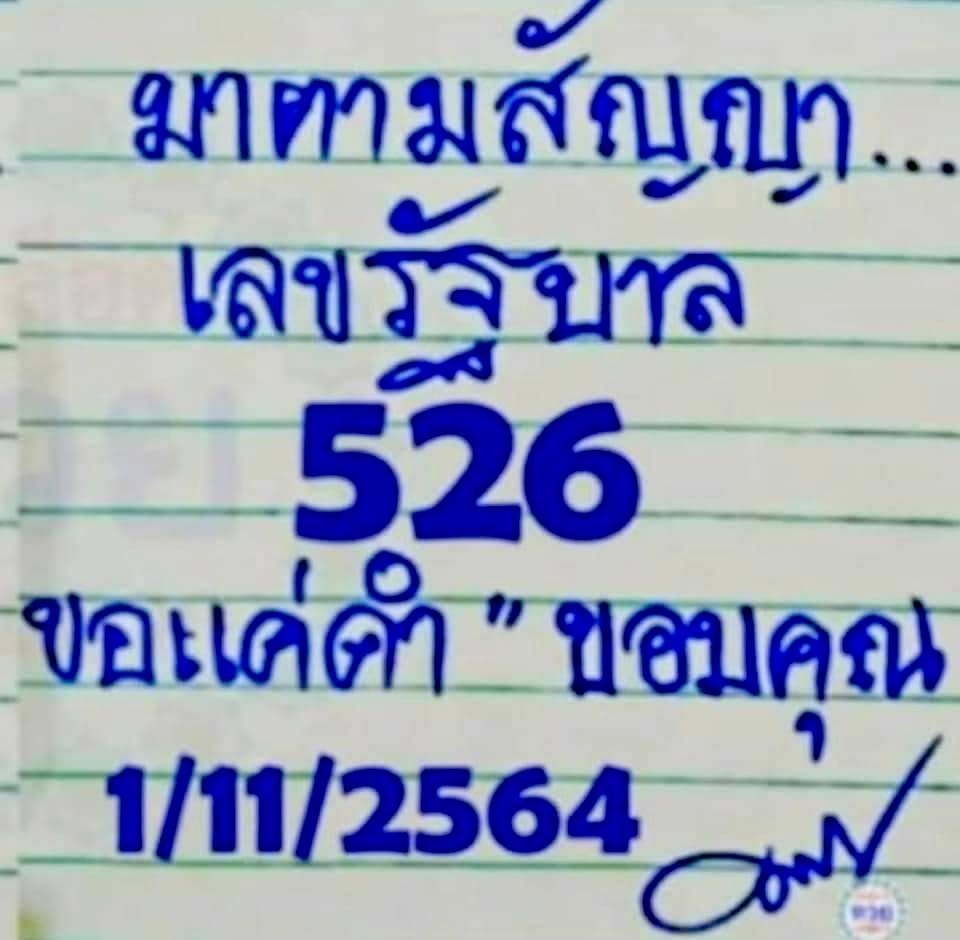 มาตามสัญญา...
เลขรัฐบาล
526
ขอแค่คำ " ขอบคุณ
1/11/2564
หวย